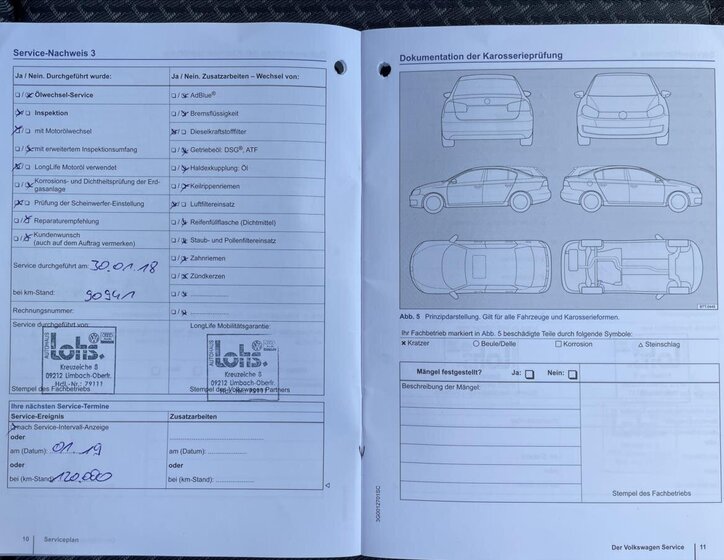 Service-Nachweis 3
Ja / Nein. Durchgeführt wurde:
Ölwechsel-Service
Inspektion
mit Motorölwechsel
mit erweitertem Inspektionsumfang
LongLife Motoröl verwendet
Korrosions- und Dichtheitsprüfung der Erd-
gasanlage
Prüfung der Scheinwerfer-Einstellung
Reparaturempfehlung
Kundenwunsch
(auch auf dem Auftrag vermerken)
Service durchgeführt am: 30.01.18
bei km-Stand: 90941
Rechnungsnummer:
Service durchgeführt von:
AUTOHAUS
Lohs.
Kreuzeiche 8
09212 Limbach-Oberfr.
Hdl.-Nr.: 79111
Stempel des Fachbetriebs
Ja / Nein. Zusatzarbeiten – Wechsel von:
AdBlue®
Bremsflüssigkeit
Dieselkraftstofffilter
Getriebeöl: DSG®, ATF
Haldexkupplung: Öl
Keilrippenriemen
Luftfiltereinsatz
Reifenfüllflasche (Dichtmittel)
Staub- und Pollenfiltereinsatz
Zahnriemen
Zündkerzen
LongLife Mobilitätsgarantie:
AUTOHAUS
Lohs.
Kreuzeiche 8
09212 Limbach-Oberfr.
Hdl.-Nr.: 79111
Stempel des Volkswagen Partners
Ihre nächsten Service-Termine
Service-Ereignis
nach Service-Intervall-Anzeige
oder
am (Datum): 01.19
oder
bei (km-Stand): 120.000
Zusatzarbeiten
am (Datum):
oder
bei (km-Stand):
10 Serviceplan
Dokumentation der Karosserieprüfung
Abb. 5 Prinzipdarstellung. Gilt für alle Fahrzeuge und Karosserieformen.
Ihr Fachbetrieb markiert in Abb. 5 beschädigte Teile durch folgende Symbole:
Kratzer Beule/Delle Korrosion Steinschlag
Mängel festgestellt? Ja: Nein:
Beschreibung der Mängel:
Stempel des Fachbetriebs
3G0012701SC
Der Volkswagen Service 11